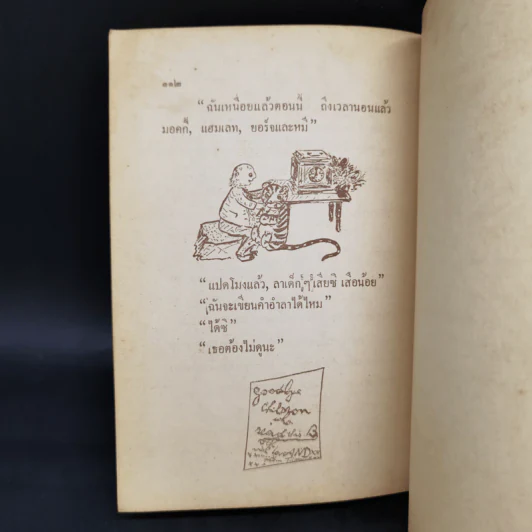 ๑๑๒
“ฉันเหนื่อยแล้วตอนนี้ ถึงเวลานอนแล้ว
มอคกี้, แฮมเลท, ยอร์จและหมี”
“แปดโมงแล้ว, ลาเด็กๆ เสียซิ เสือน้อย”
“ฉันจะเขียนคำอำลาได้ไหม”
“ได้ซิ”
“เธอต้องไม่ดูนะ”
goodbye